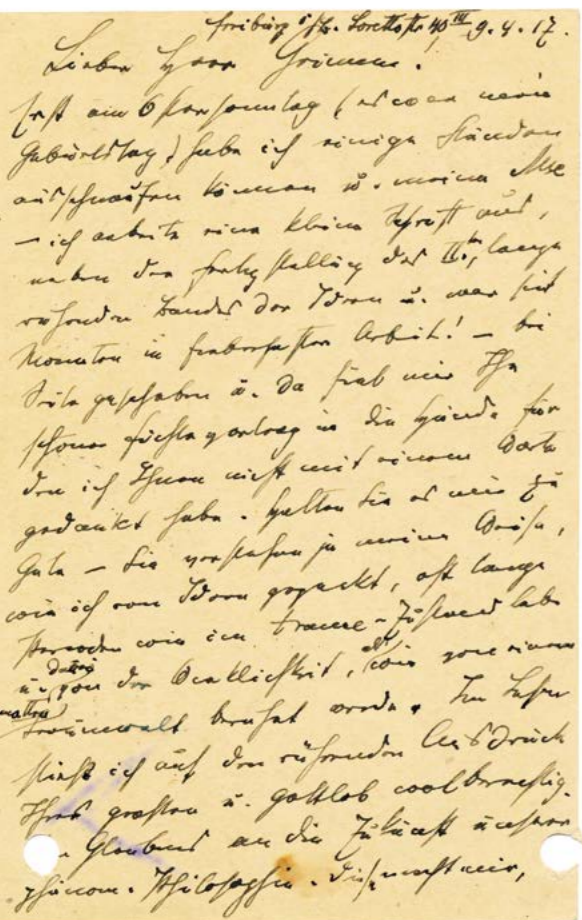 Freiburg i/Br. Lorettostr. 40 III 9.4.17.
Lieber Herr Grimme.
Erst am Ostersonntag (es war mein
Geburtstag) habe ich einige Stunden
ausschnaufen können u. meine Mse
– ich arbeite eine kleine Schrift aus,
neben der Fertigstellung des IIten, lange
ruhenden Bandes der Ideen u. war seit
Monaten in fieberhafter Arbeit! – bei
Seite geschoben u. da fiel mir Ihr
schöner Fichtevortrag in die Hände für
den ich Ihnen nicht mit einem Worte
gedankt habe. Halten Sie es mir zu
Gute – Sie verstehen ja meine Weise,
wie ich von Ideen gepackt, oft lange
Perioden wie im Traum-Zustand lebe
u. von der Wirklichkeit, wie von einer
matten Traumwelt berührt werde. Im Lesen
stieß ich auf den rührenden Ausdruck
Ihres großen u. gottlob wohlberechtig-
Glaubens an die Zukunft unserer
phänom. Philosophie. Dies macht mir,